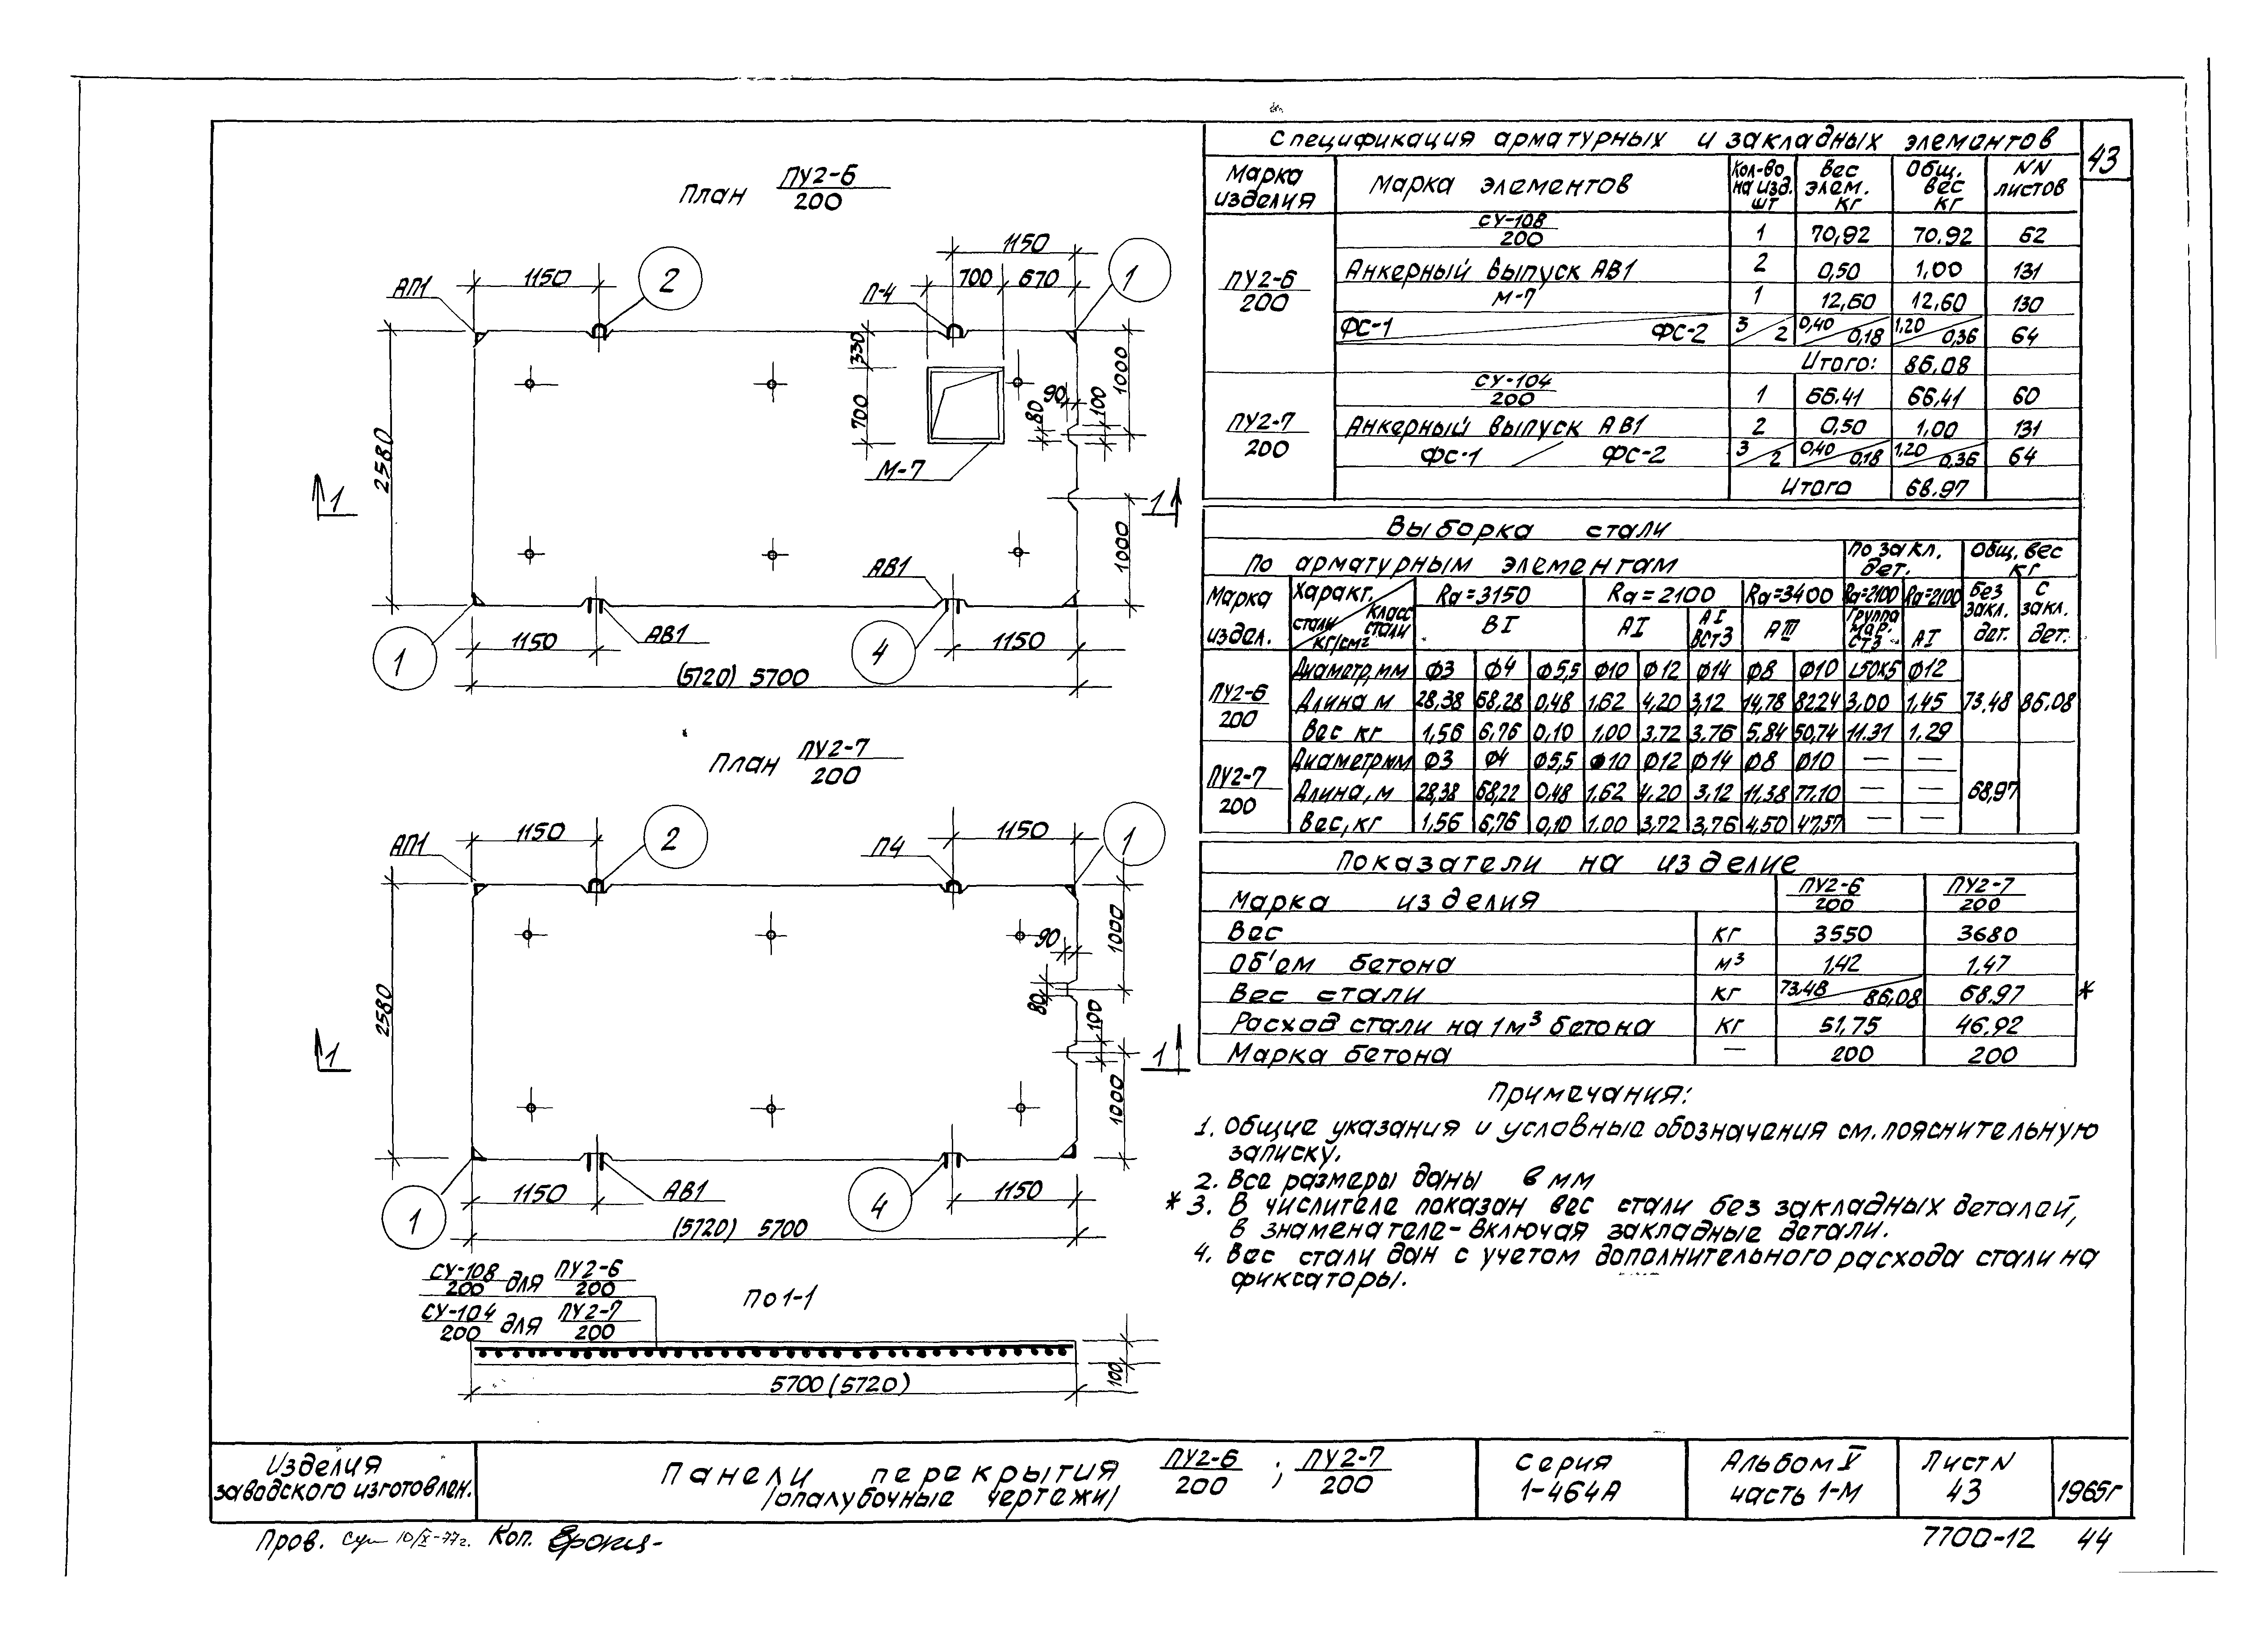 43
План ПУ2-6/200
1150
1150
700 670
АП1
2
П-4
1
330
700
2580
90
80
100
1000
1000
М-7
1 1
АВ1
АВ1
1150
1150
1
4
(5720) 5700
План ПУ2-7/200
1150
1150
АП1
2
П4
1
2580
90
80
100
1000
1000
1 1
1150
АВ1
1150
1
4
(5720) 5700
СУ-108/200 для ПУ2-6/200
СУ-104/200 для ПУ2-7/200
По 1-1
100
5700 (5720)
Спецификация арматурных и закладных элементов
Марка изделия | Марка элементов | Кол-во на изд. шт | Вес элем. кг | Общ. вес кг | NN листов
ПУ2-6/200 | СУ-108/200 | 1 | 70,92 | 70.92 | 62
Анкерный выпуск АВ1 | 2 | 0,50 | 1,00 | 131
М-7 | 1 | 12,60 | 12,60 | 130
ФС-1 / ФС-2 | 3/2 | 0,40/0,18 | 1,20/0,36 | 64
Итого: 86.08
ПУ2-7/200 | СУ-104/200 | 1 | 66.41 | 66,41 | 60
Анкерный выпуск АВ1 | 2 | 0,50 | 1,00 | 131
ФС-1 / ФС-2 | 3/2 | 0,40/0,18 | 1,20/0,36 | 64
Итого 68.97
Выборка стали
По арматурным элементам | По закл. дет. | Общ, вес кг
Марка издел. | Характ. стали кг/см2 / Класс стали | Ra=3150 | Ra=2100 | Ra=3400 | Ra=2100 | Ra=2100 | Без закл. дет. | С закл. дет.
ВI | АI | АI ВСт3 | АIII | Группа мар. Ст3 | АI
ПУ2-6/200 | Диаметр, мм | Ф3 | Ф4 | Ф5,5 | Ф10 | Ф12 | Ф14 | Ф8 | Ф10 | L50x5 | Ф12
Длина м | 28,38 | 68,28 | 0,48 | 1,62 | 4,20 | 3,12 | 14,78 | 82.24 | 3,00 | 1,45 | 73.48 | 86.08
Вес кг | 1,56 | 6,76 | 0,10 | 1,00 | 3,72 | 3,76 | 5,84 | 50,74 | 11.31 | 1,29
ПУ2-7/200 | Диаметр мм | Ф3 | Ф4 | Ф5,5 | Ф10 | Ф12 | Ф14 | Ф8 | Ф10 | — | —
Длина, м | 28,38 | 68,22 | 0,48 | 1,62 | 4,20 | 3,12 | 11,38 | 77.10 | — | — | 68,97
Вес, кг | 1,56 | 6,76 | 0,10 | 1,00 | 3,72 | 3,76 | 4,50 | 47,57 | — | —
Показатели на изделие
Марка изделия | ПУ2-6/200 | ПУ2-7/200
Вес | кг | 3550 | 3680
Об'ем бетона | м³ | 1,42 | 1.47
Вес стали | кг | 73.48/86,08 | 68.97 *
Расход стали на 1м³ бетона | кг | 51,75 | 46.92
Марка бетона | — | 200 | 200
Примечания:
1. Общие указания и условные обозначения см. пояснительную
записку.
2. Все размеры даны в мм
* 3. В числителе показан вес стали без закладных деталей,
в знаменателе - включая закладные детали.
4. Вес стали дан с учетом дополнительного расхода стали на
фиксаторы.
Изделия
заводского изготовлен.
Панели перекрытия ПУ2-6/200 ; ПУ2-7/200
/опалубочные чертежи/
Серия
1-464А
Альбом V
часть 1-М
Лист N
43
1965г
Пров. 10/X-77г. Коп.
7700-12 44